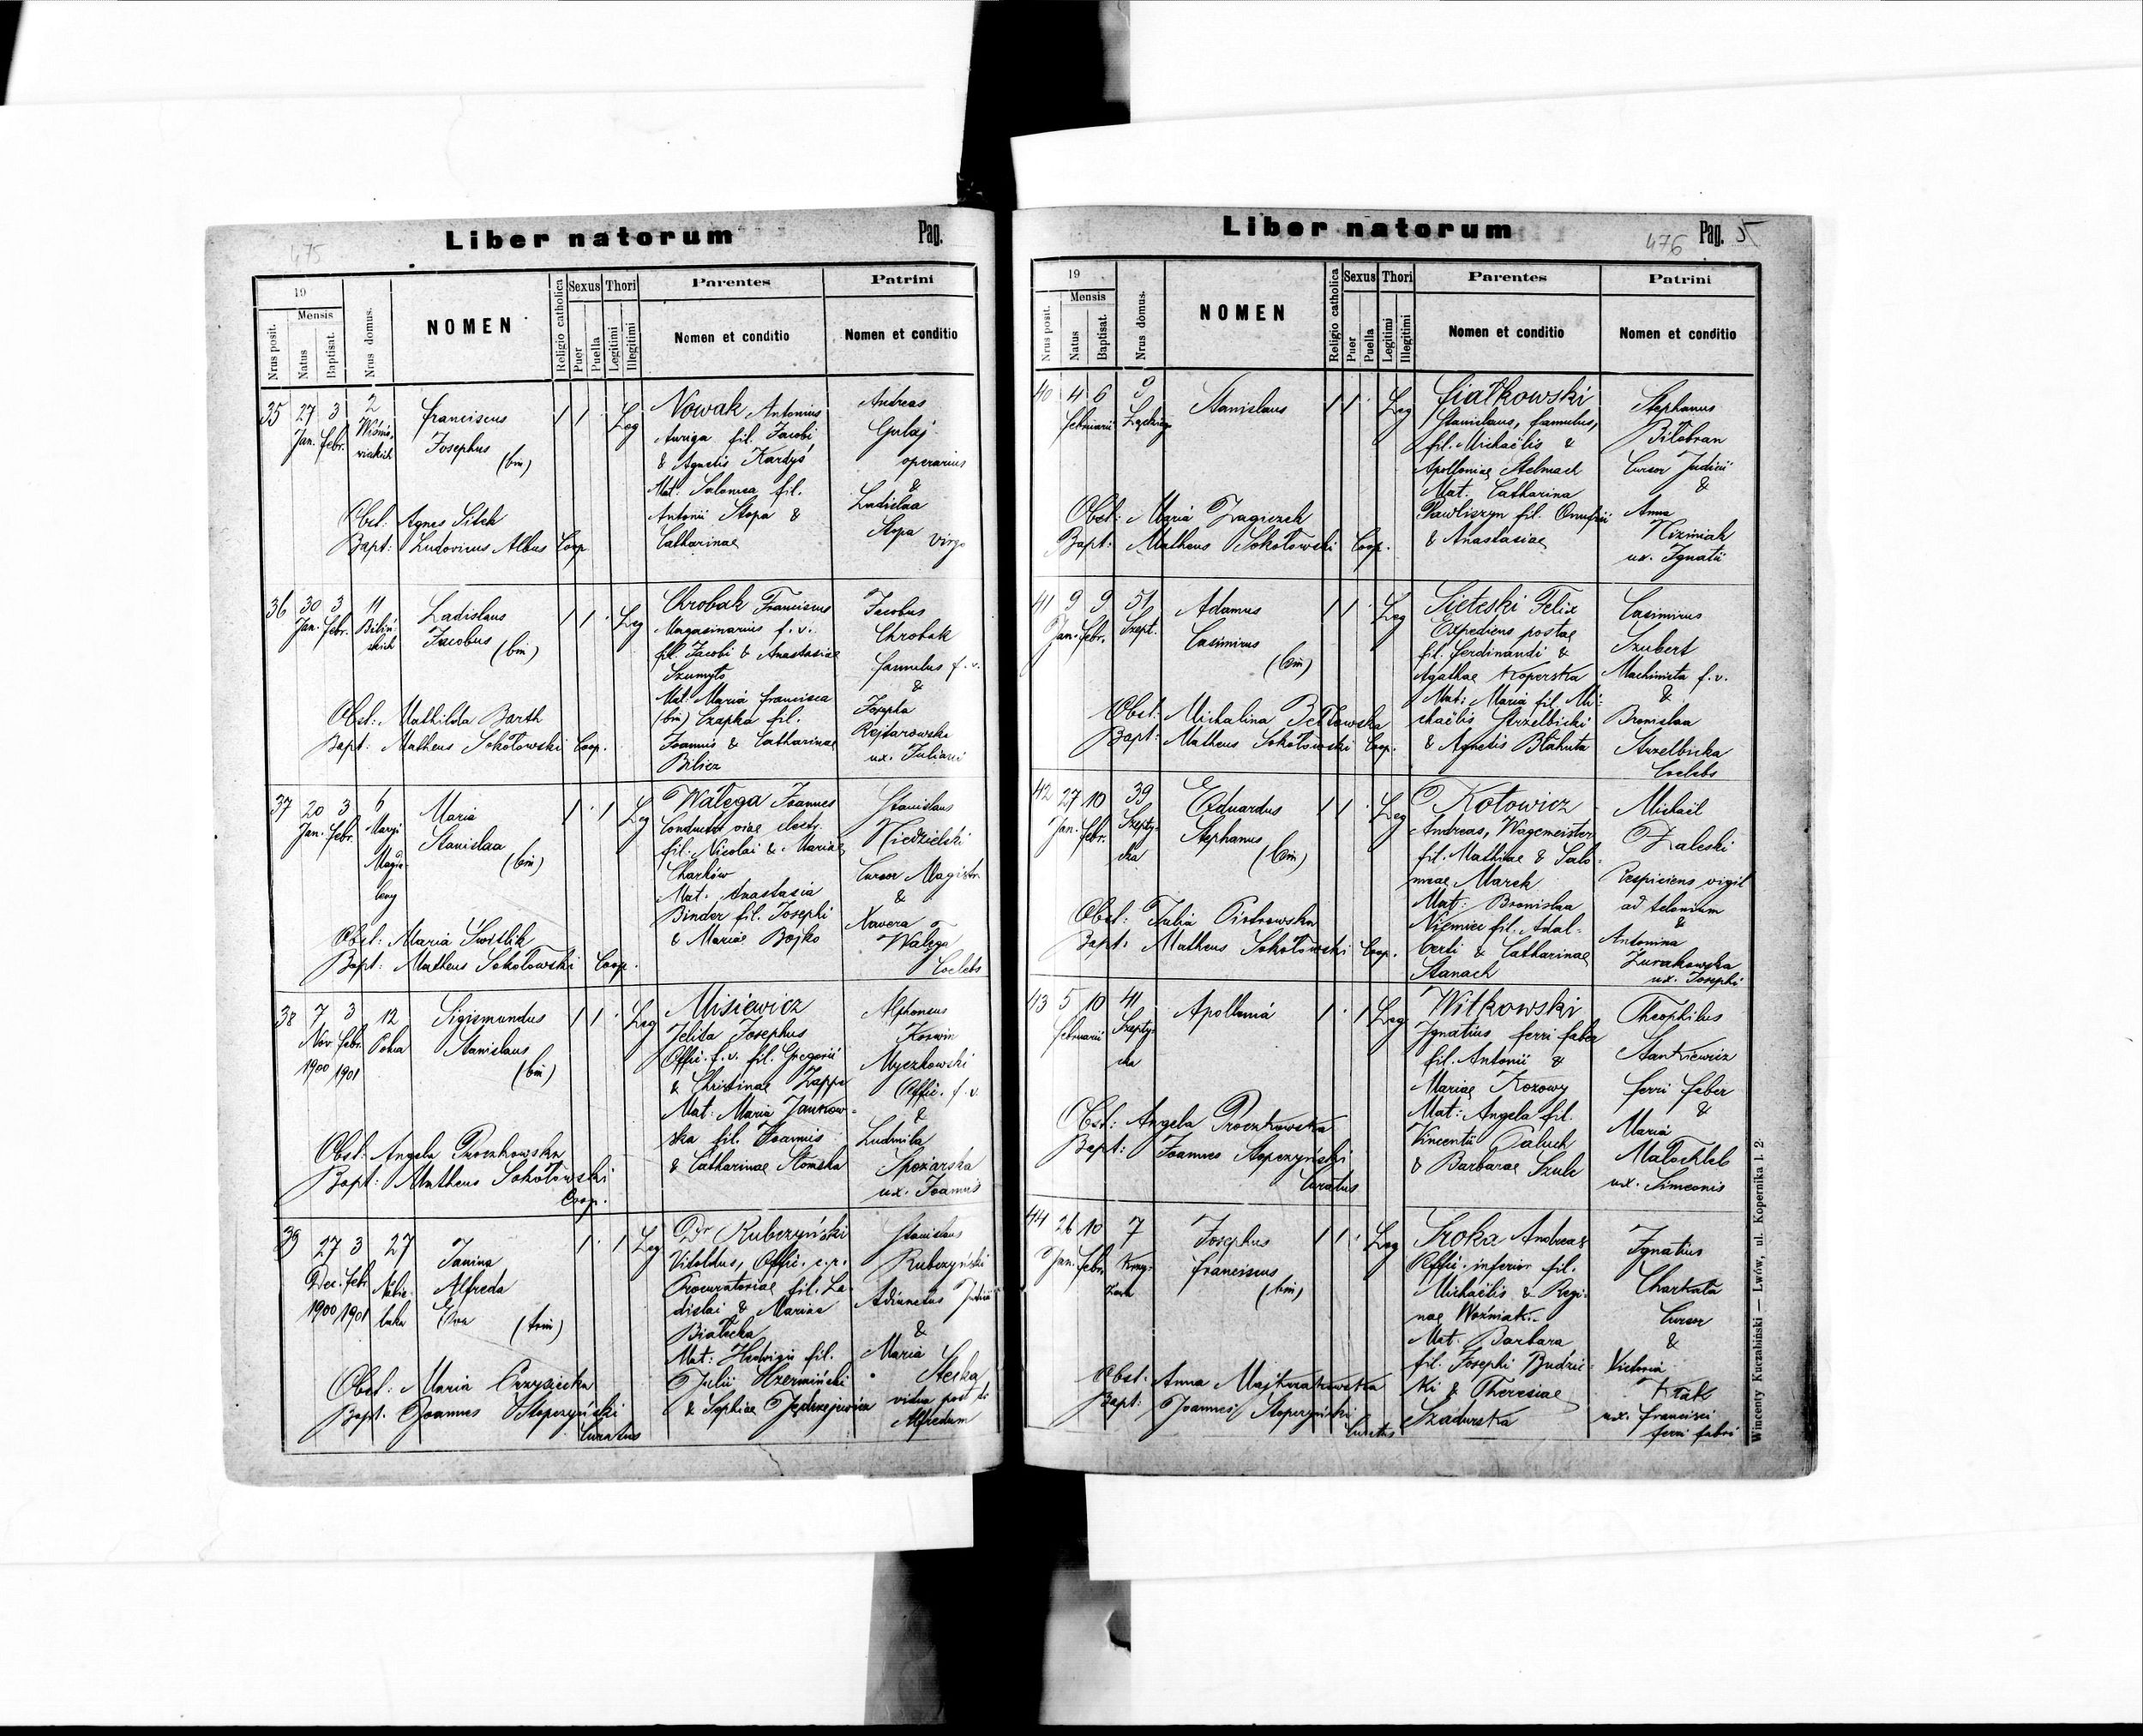 475
Liber natorum
Pag.
19
Mensis
Nrus posit.
Natus
Baptisat.
Nrus domus.
NOMEN
Religio catholica
Sexus
Puer
Puella
Thori
Legitimi
Illegitimi
Parentes
Nomen et conditio
Patrini
Nomen et conditio
35 27 3 2
Jan. Febr. Wiśnio-
wieckich
Franciscus
Josephus
(bin)
1 1 Leg
Nowak Antonius
Auriga fil. Jacobi
& Agnetis Kardyś
Mat. Salomea fil.
Antonii Stopa &
Catharinae
Andreas
Gulaj
operarius
&
Ladislaa
Stopa virgo
Obst: Agnes Sitek
Bapt: Ludovicus Albus Coop
36 30 3 11
Jan. Febr. Biliń-
skich
Ladislaus
Jacobus (bin)
1 1 Leg
Chrobak Franciscus
Magasinarius f. v.
fil. Jacobi & Anastasiae
Szumyło
Mat: Maria Francisca
(bin) Czapka fil.
Joannis & Catharinae
Bilicz
Jacobus
Chrobak
famulus f. v.
&
Josepha
Rejtarowska
ux. Juliani
Obst: Mathilda Barth
Bapt: Matheus Sokołowski Coop.
37 20 3 6
Jan. Febr. Maryi
Magda-
leny
Maria
Stanislaa
(bin)
1 1 Leg
Wałęga Joannes
Conductor viae electr.
fil. Nicolai & Mariae
Charków
Mat. Anastasia
Binder fil. Josephi
& Mariae Bojko
Stanislaus
Niedzielski
Cursor Magistr.
&
Xavera
Wałęga
Coelebs
Obst: Maria Świstlik
Bapt: Matheus Sokołowski Coop.
38 7 3 12
Nov. Febr. Polna
1900 1901
Sigismundus
Stanislaus
(bin)
1 1 Leg
Misiewicz
Jelita Josephus
Offic. f. v. fil. Gregorii
& Christinae Zappe
Mat: Maria Jankow-
ska fil. Joannis
& Catharinae Słomska
Alphonsus
Korwin
Myczkowski
Offic. f. v.
&
Ludmila
Spożarska
ux. Joannis
Obst: Angela Proczkowska
Bapt: Matheus Sokołowski
Coop.
39 27 3 27
Dec. Febr. Nabie-
1900 1901 laka
Janina
Alfreda
Eva (trin)
1 1 Leg
Dr Rubczyński
Vitoldus, Offic. c. r.
Procuratoriae fil. La-
dislai & Mariae
Białecka
Mat: Hedwigis fil.
Julii Strzemiński
& Sophiae Jędrzejowicz
Stanislaus
Rubczyński
Adiunctus Judicii
&
Maria
Stecka
vidua post
Alfredum
Obst: Maria Krzysiecka
Bapt. Joannes Stopczyński
Curatus
476
Liber natorum
Pag. 5
19
Mensis
Nrus posit.
Natus
Baptisat.
Nrus domus.
NOMEN
Religio catholica
Sexus
Puer
Puella
Thori
Legitimi
Illegitimi
Parentes
Nomen et conditio
Patrini
Nomen et conditio
40 4 6 9
Februarii
Stanislaus
1 1 Leg
Fiałkowski
Stanislaus, famulus,
fil. Michaëlis &
Apolloniae Stelmach
Mat. Catharina
Pawliszyn fil. Onufrii
& Anastasiae
Stephanus
Biłobran
Cursor Judicii
&
Anna
Niziniak
ux. Ignatii
Obst: Maria Zagiczek
Bapt: Matheus Sokołowski Coop.
41 9 9 51
Jan. Febr. Szept.
Adamus
Casimirus
(bin)
1 1 Leg
Sieteski Felix
Expediens postae
fil. Ferdinandi &
Agathae Koperska
Mat: Maria fil. Mi-
chaëlis Strzelbicki
& Agnetis Błahuta
Casimirus
Szubert
Machinista f. v.
&
Bronislaa
Strzelbicka
Coelebs
Obst: Michalina Bełtowska
Bapt: Matheus Sokołowski Coop.
42 27 10 39
Jan. Febr. Szepty-
cka
Eduardus
Stephanus
(bin)
1 1 Leg
Kotowicz
Andreas, Wagemeister
fil. Mathiae & Salo-
meae Marek
Mat: Bronislaa
Niemiec fil. Adal-
berti & Catharinae
Stanach
Michaël
Zaleski
Respiciens vigil
ad telonium
&
Antonina
Żurakowska
ux. Josephi
Obst: Julia Piotrowska
Bapt: Matheus Sokołowski Coop.
43 5 10 41
Februarii Szepty-
cka
Apollonia
1 1 Leg
Witkowski
Ignatius ferri faber
fil. Antonii &
Mariae Kozowy
Mat: Angela fil.
Vincentii Całuch
& Barbarae Szulc
Theophilus
Stankiewicz
ferri faber
&
Maria
Małochleb
ux. Simeonis
Obst: Angela Proczkowska
Bapt: Joannes Stopczyński
Curatus
44 26 10 7
Jan. Febr.
Josephus
Franciscus
(bin)
1 1 Leg
Sroka Andreas
Offic. inferior fil.
Michaëlis & Regi-
nae Woźniak
Mat. Barbara
fil. Josephi Budzic-
ki & Theresiae
Szadurska
Ignatius
Charkata
Cursor
&
Victoria
Kràk
ux. Francisci
ferri fabri
Obst: Anna Majkwatowska
Bapt: Joannes Stopczyński
Curatus
Wincenty Kuczabiński — Lwów, ul. Kopernika l. 2